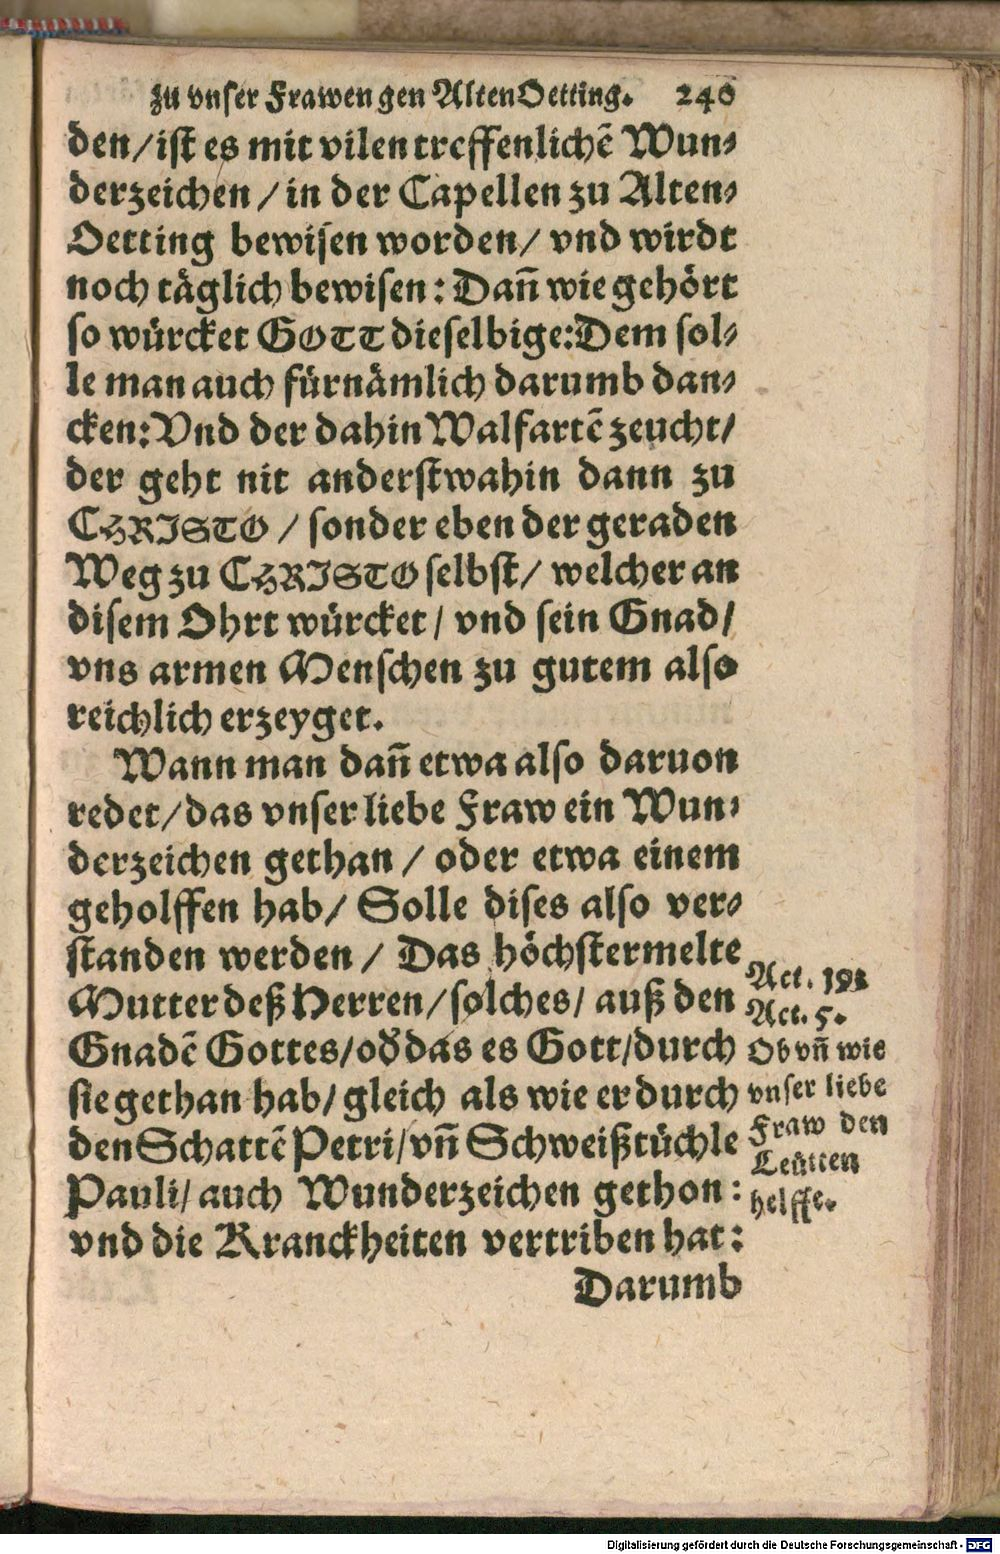 zu vnser Frawen gen Alten Oetting. 240
den/ ist es mit vilen treffenlichē Wun⸗
derzeichen / in der Capellen zu Alten⸗
Oetting bewisen worden/ vnd wirdt
noch täglich bewisen: Dañ wie gehört
so würcket GOTT dieselbige: Dem sol⸗
le man auch fürnämlich darumb dan⸗
cken: Vnd der dahin Walfartē zeucht/
der geht nit anderstwahin dann zu
CHRISTO / sonder eben der geraden
Weg zu CHRISTO selbst/ welcher an
disem Ohrt würcket/ vnd sein Gnad/
vns armen Menschen zu gutem also
reichlich erzeyget.
Wann man dañ etwa also daruon
redet/ das vnser liebe Fraw ein Wun⸗
derzeichen gethan / oder etwa einem
geholffen hab/ Solle dises also ver⸗
standen werden / Das höchstermelte
Mutter deß Herren/ solches/ auß den
Gnadē Gottes/ od das es Gott/ durch
sie gethan hab/ gleich als wie er durch
den Schattē Petri/ vñ Schweißtüchle
Pauli/ auch Wunderzeichen gethon:
vnd die Kranckheiten vertriben hat:
Darumb
Act. 19.
Act. 5.
Ob vñ wie
vnser liebe
Fraw den
Leütten
helffe.
Digitalisierung gefördert durch die Deutsche Forschungsgemeinschaft - DFG